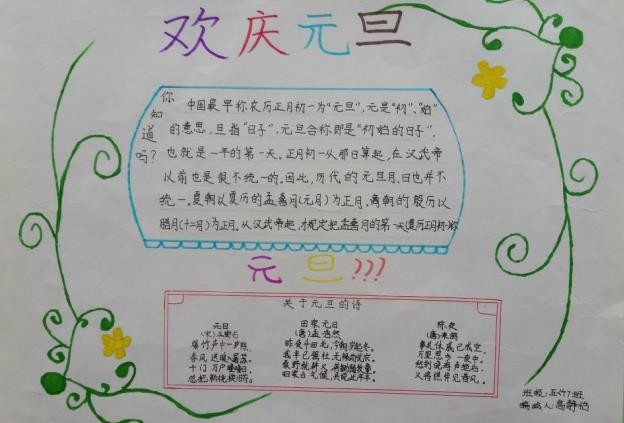 欢庆元旦
你知道吗？
中国最早称农历正月初一为“元旦”，元是“初”、“始”
的意思，旦指“日子”，元旦合称即是“初始的日子”，
也就是一年的第一天。正月初一从那日算起，在汉武帝
以前也是很不统一的。因此，历代的元旦月、日也并不
统一。夏朝以夏历的孟喜月(元月)为正月，商朝的殷历以
腊月(十二月)为正月，从汉武帝起，才规定把孟喜月的第一天(夏历正月初一)称
元旦???
关于元旦的诗
元日
(宋)王安石
爆竹声中一岁除，
春风送暖入屠苏。
千门万户曈曈日，
总把新桃换旧符。
田家元日
(唐)孟浩然
昨夜斗回北，今朝岁起东。
我年已强仕，无禄尚忧农。
桑野就耕父，荷锄随牧童。
田家占气候，共说此年丰。
除夜
(唐)来鹄
事关休戚已成空，
万里思乡一夜中。
愁到晓鸡声绝后，
又将憔悴见春风。
班级：五(7)班
编画人：高静怡